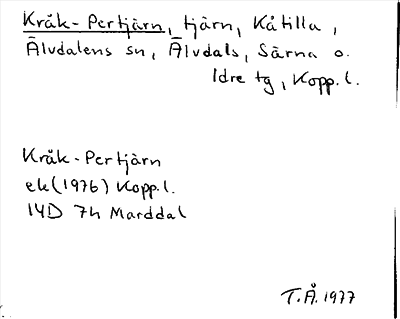 Kråk-Pertjärn, tjärn, Kåtilla,
Älvdalens sn, Älvdals, Särna o.
Idre tg, Kopp. l.
Kråk-Pertjärn
ek (1976) Kopp. l.
14D 7h Marddal
T.Å. 1977